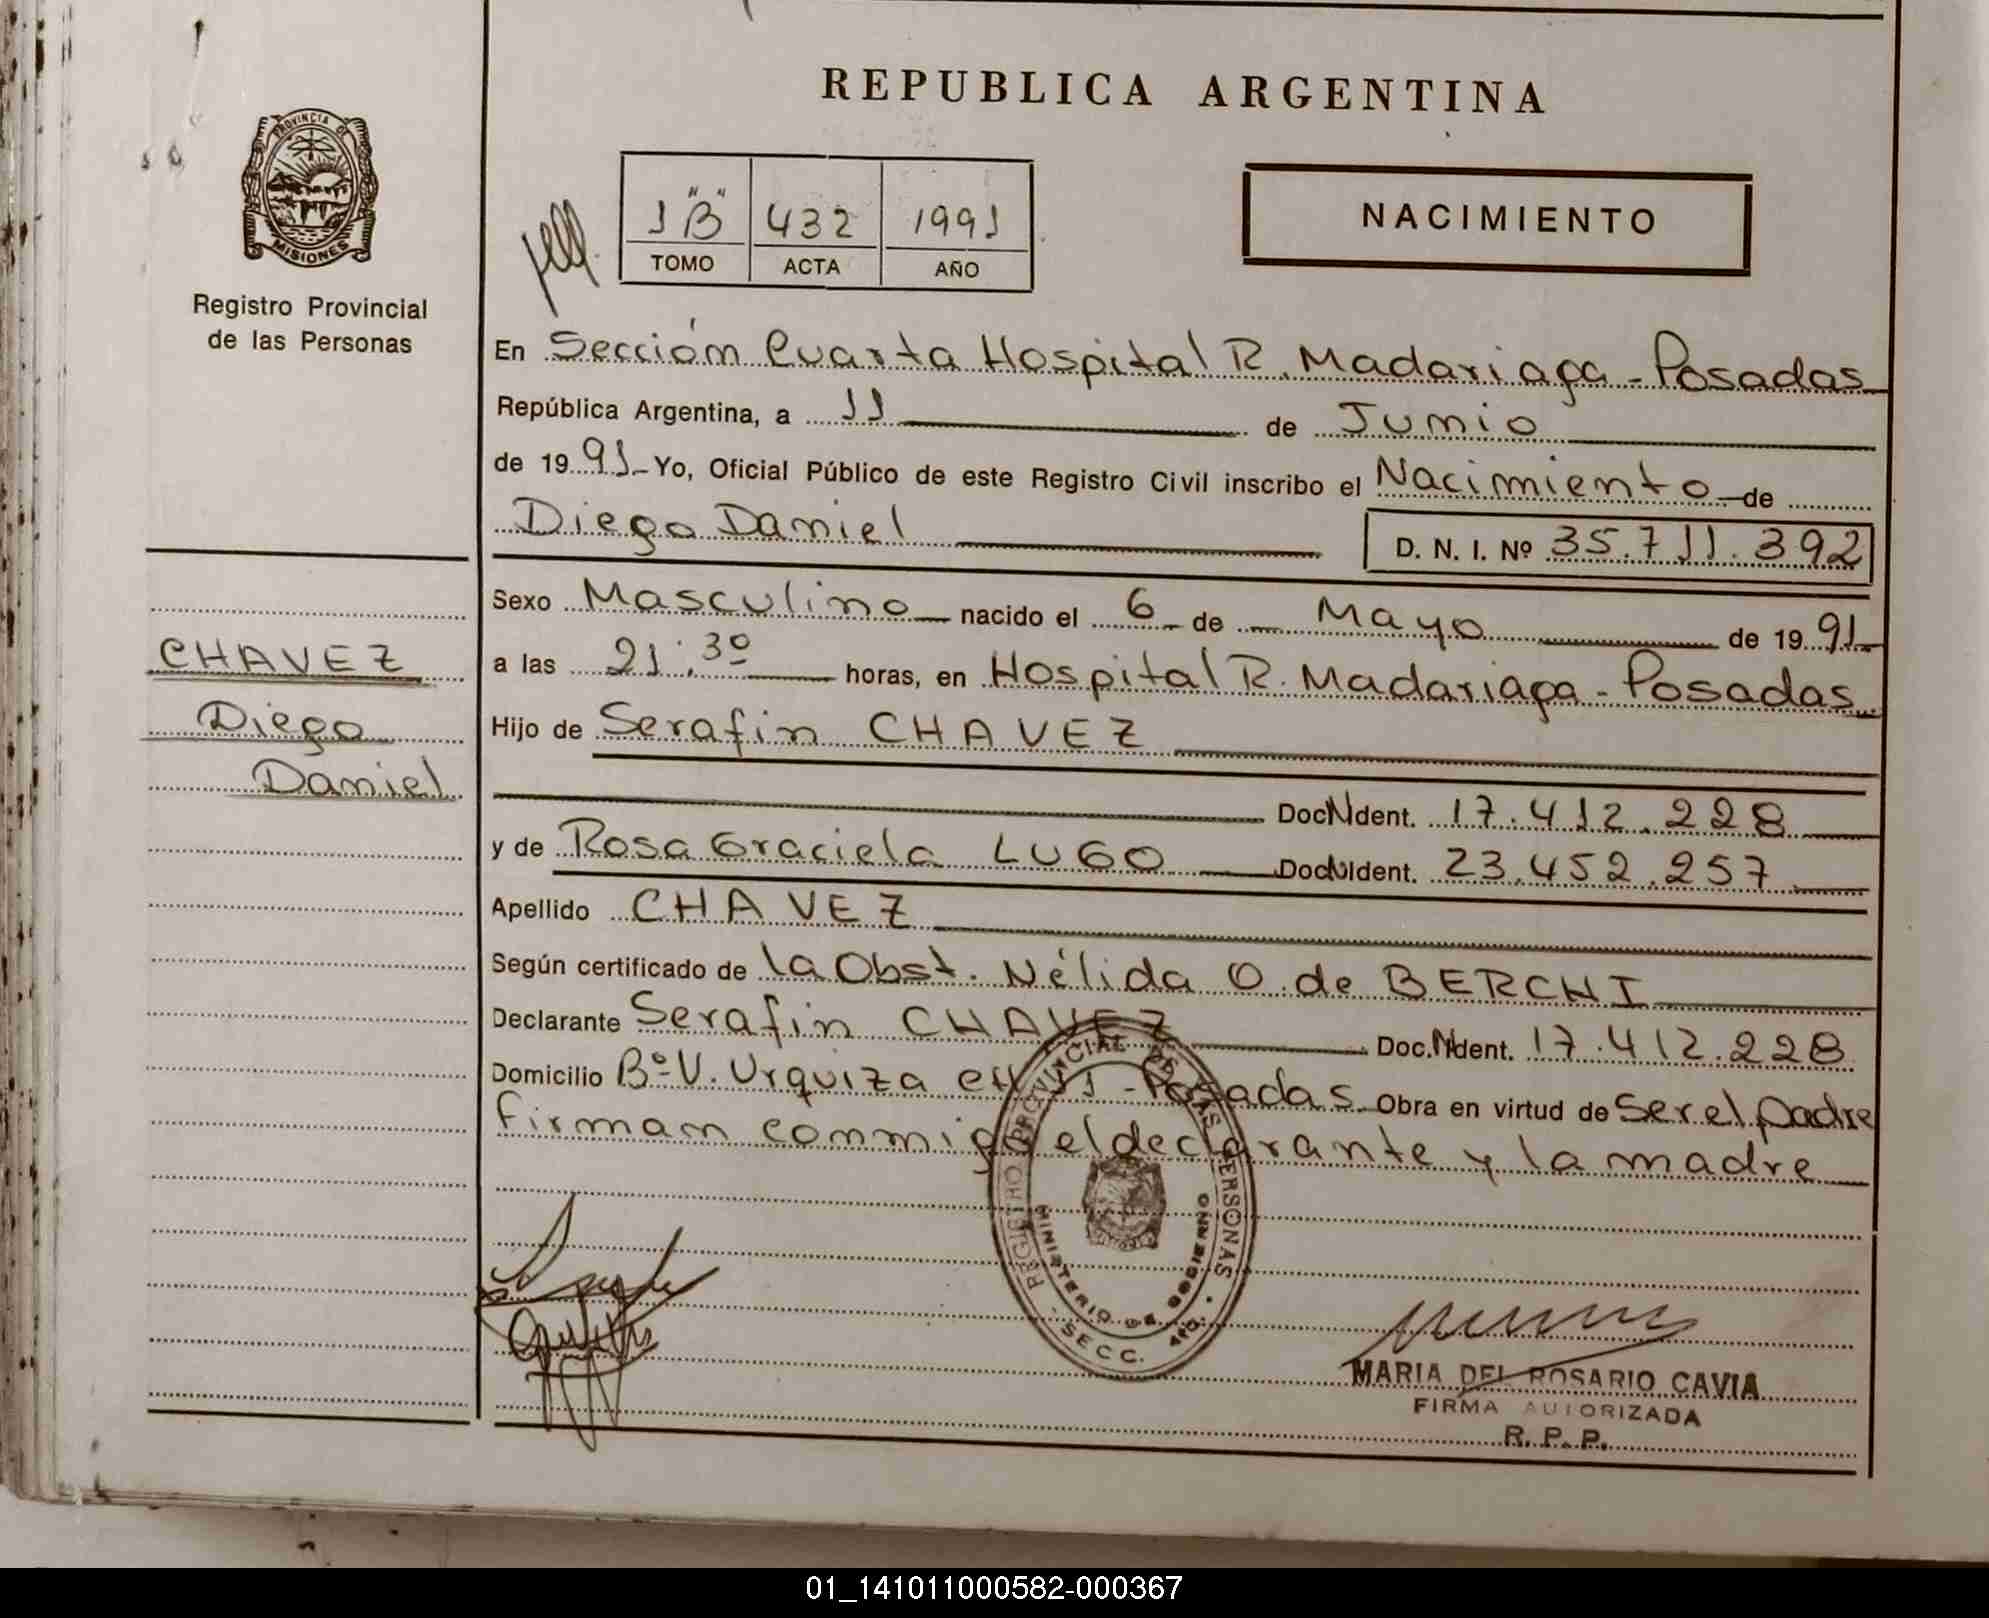 REPUBLICA ARGENTINA
PROVINCIA DE
MISIONES
Registro Provincial
de las Personas
1 "B" 432 1991
TOMO ACTA AÑO
NACIMIENTO
En Sección Cuarta Hospital R. Madariaga - Posadas
República Argentina, a 11 de Junio
de 1991 Yo, Oficial Público de este Registro Civil inscribo el Nacimiento de
Diego Daniel D. N. I. Nº 35.711.392
Sexo Masculino nacido el 6 de Mayo de 1991
a las 21:30 horas, en Hospital R. Madariaga - Posadas
Hijo de Serafin CHAVEZ
Doc N Ident. 17.412.228
y de Rosa Graciela LUGO Doc N Ident. 23.452.257
Apellido CHAVEZ
Según certificado de la Obst. Nélida O. de BERCHI
Declarante Serafin CHAVEZ Doc. N Ident. 17.412.228
Domicilio Bº V. Urquiza 11 - Posadas Obra en virtud de Ser el padre
Firman conmigo el declarante y la madre
CHAVEZ
Diego
Daniel
REGISTRO PROVINCIAL DE LAS PERSONAS
MINISTERIO DE GOBIERNO
SECC. 4ta.
MARIA DEL ROSARIO CAVIA
FIRMA AUTORIZADA
R. P. P.
01_141011000582-000367